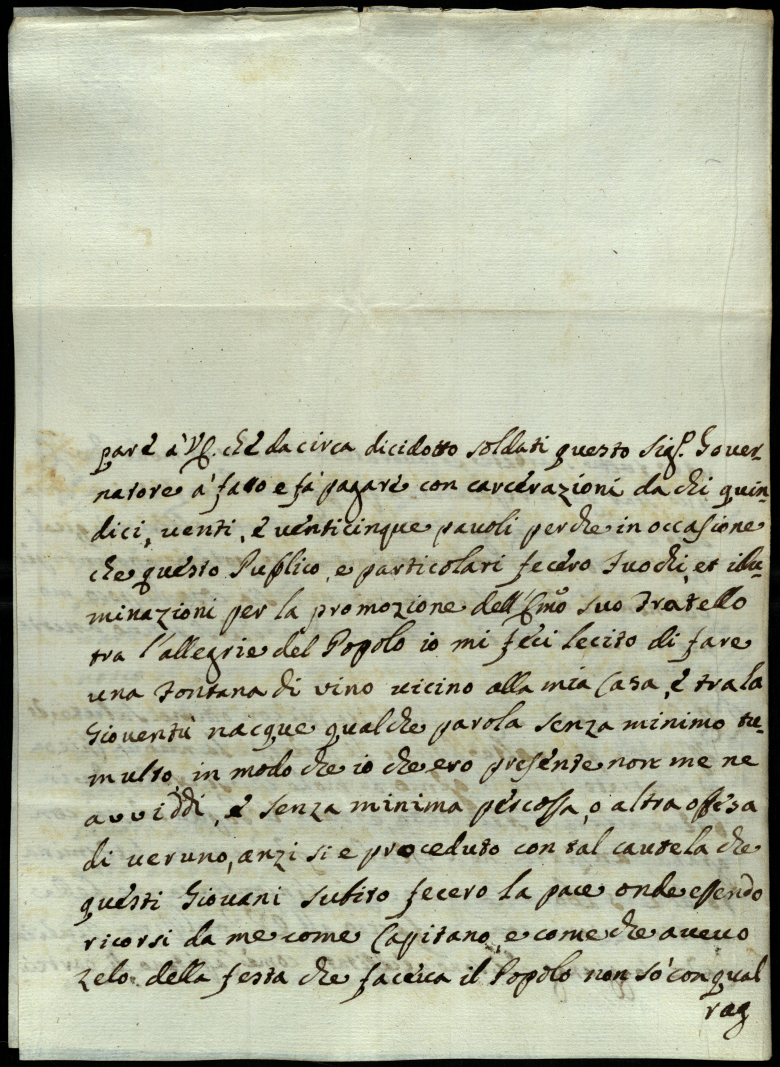 parè à VS. chè da circa dicidotto soldati questo Sig.r Gover-
natore à fatto e fà pagarè con carcerazioni da chi quin-
dici, uenti, è uenticinque pauoli perche in occasione
che questo Publico, e particolari fecero Fuochi, et illu-
minazioni per la promozione dell'Emo suo Fratello
tra l'allegrie del Popolo io mi feci lecito di fare
una Fontana di vino uicino alla mia Casa, è tra la
Giouentù nacque qualche parola senza minimo tu-
multo, in modo che io che ero presente non me ne
avviddi, è senza minima percossa, o altra offesa
di ueruno, anzi si e proceduto con tal cautela che
questi Giouani subito fecero la pace onde essendo
ricorsi da me come Capitano, e come che aueuo
zelo della festa che faceua il Popolo non sò con qual
rag